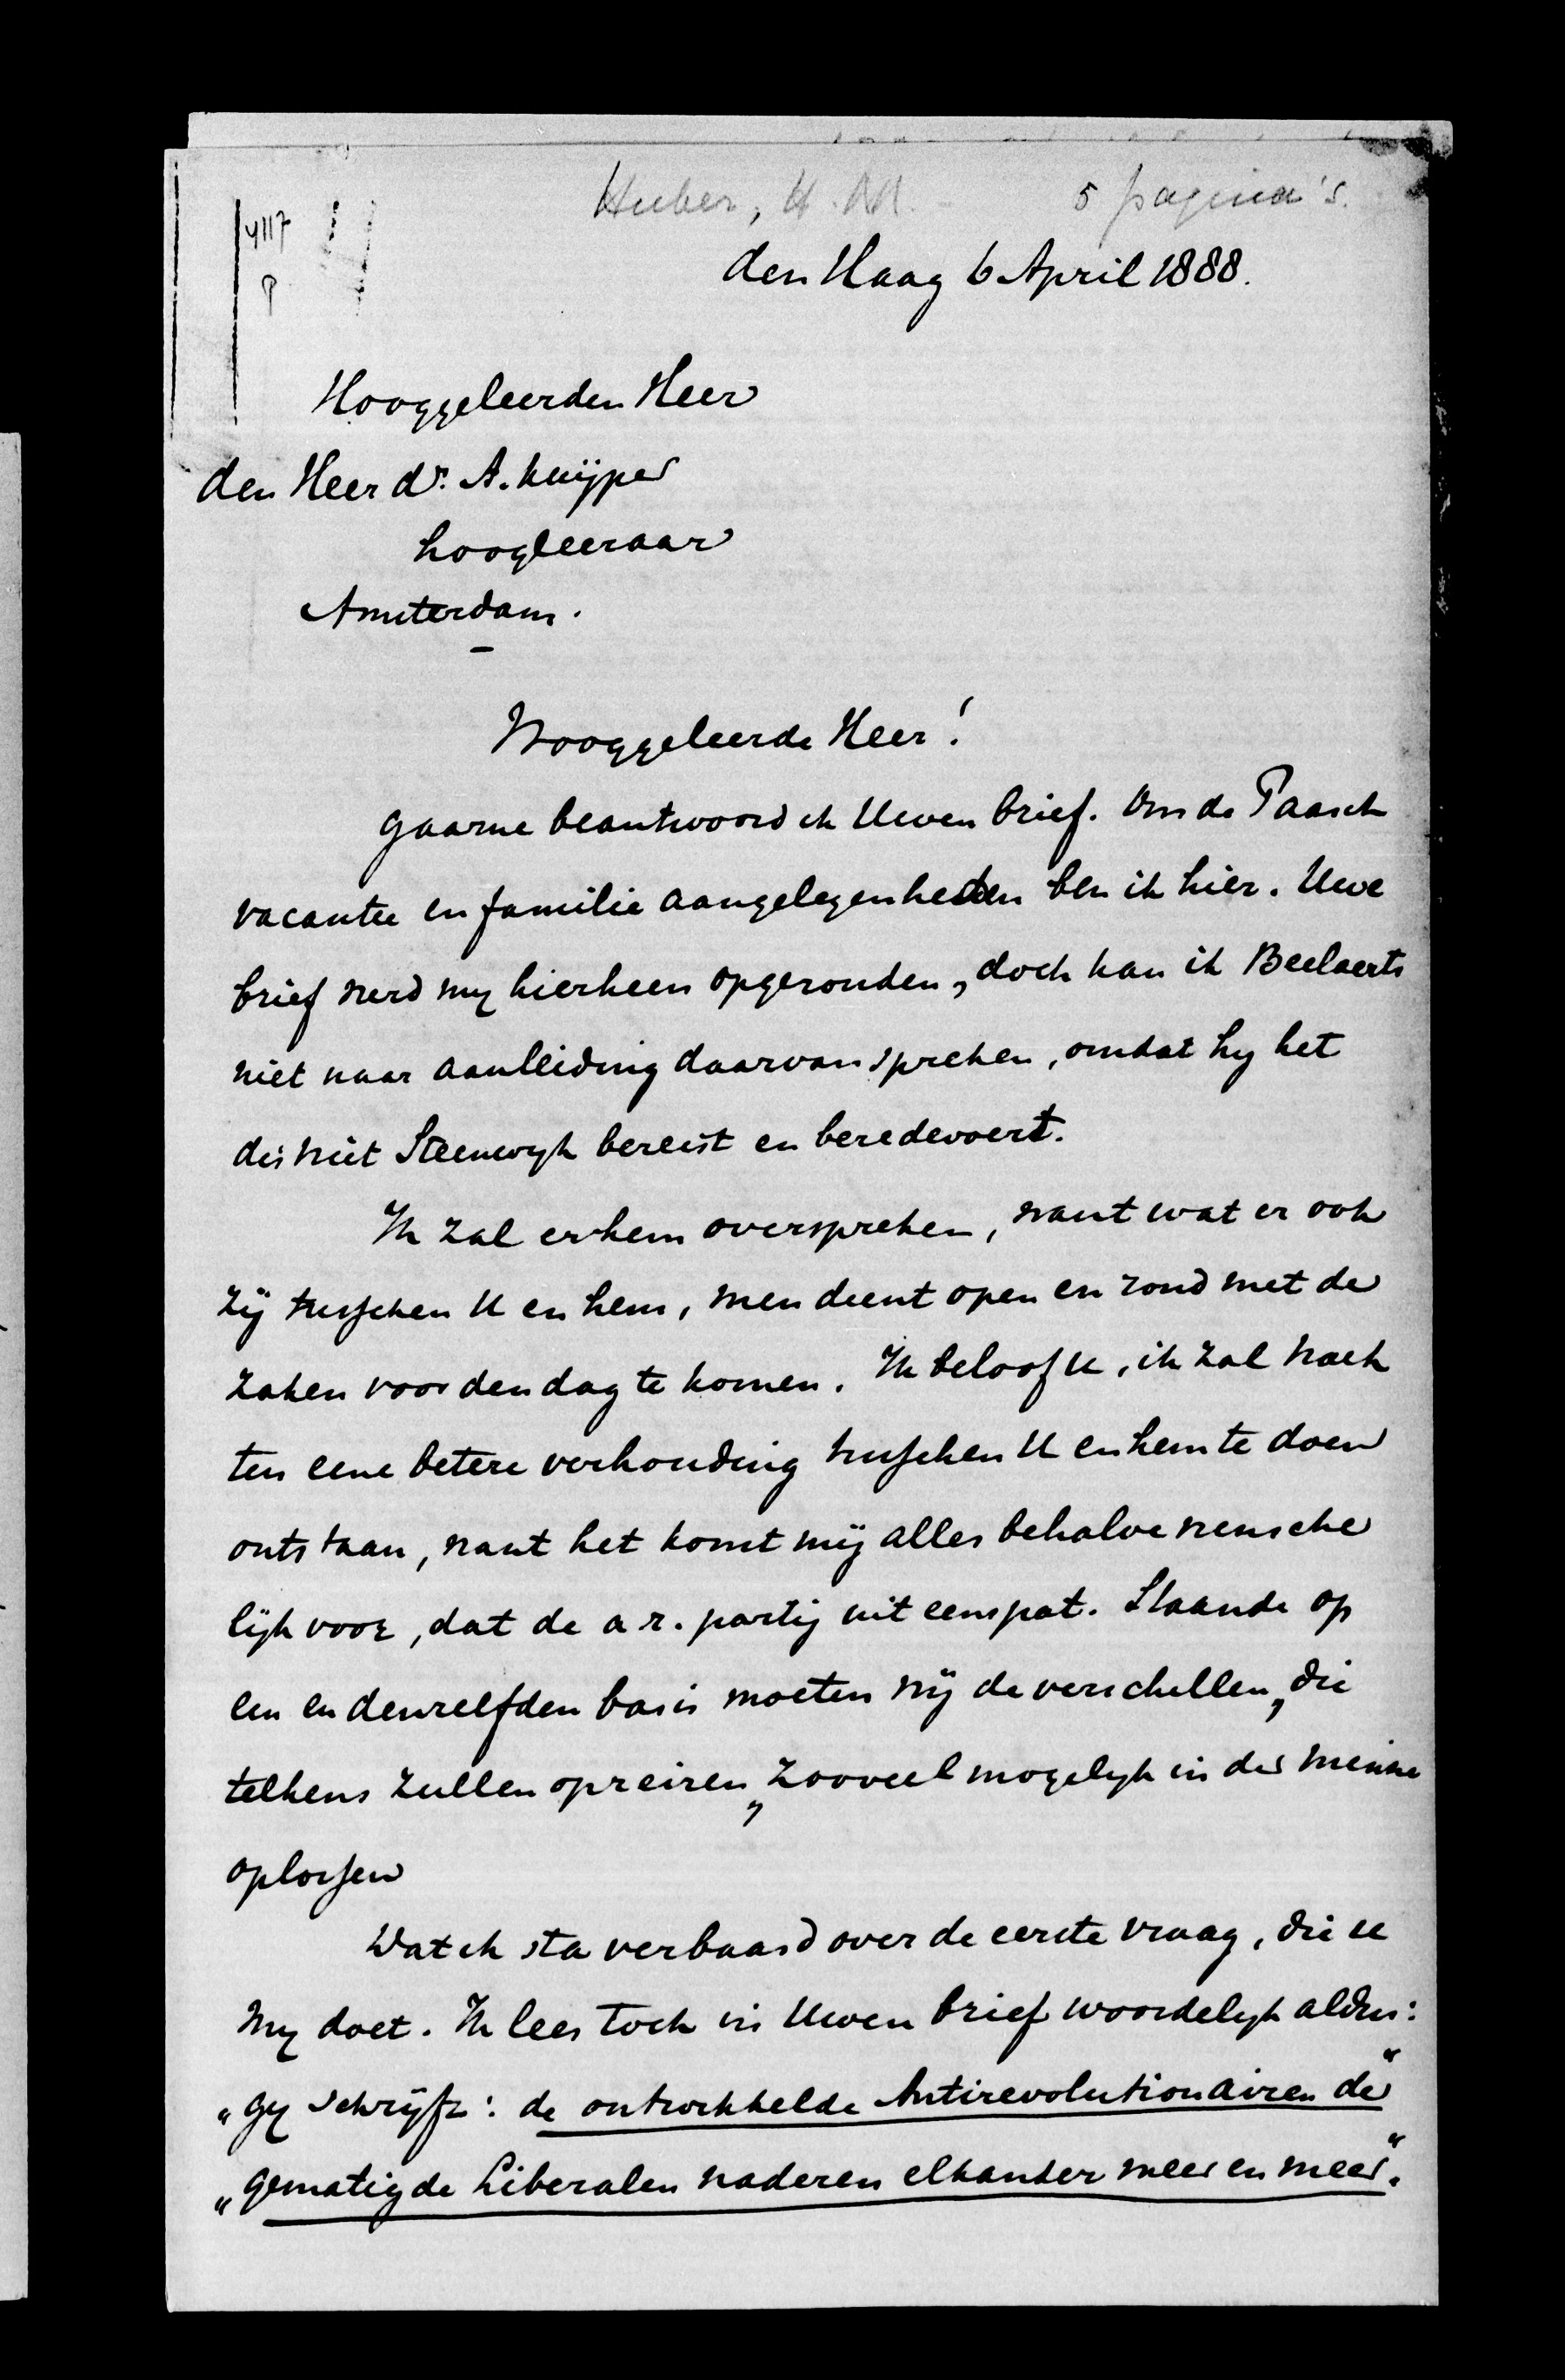 Huber, H. M. 5 pagina's.
4117
P
den Haag 6 April 1888.
Hooggeleerden Heer
den Heer dr. A. Kuijper
hoogleeraar
Amsterdam.
Hooggeleerde Heer!
Gaarne beantwoord ik Uwen brief. Om de Paasch
vacantie en familie aangelegenheden ben ik hier. Uwe
brief werd my hierheen opgezonden, doch kan ik Beelaerts
niet naar aanleiding daarvan spreken, omdat hy het
district Steenwyk bereist en beredevoert.
Ik zal er hem over spreken, want wat er ook
zij tusschen U en hem, men dient open en rond met de
zaken voor den dag te komen. Ik beloof U, ik zal trach
ten eene betere verhouding tusschen U en hem te doen
ontstaan, want het komt mij alles behalve wensche
lijk voor, dat de a r. partij uit eenspat. Staande op
een en denzelfden basis moeten wij de verschillen, die
telkens zullen oprijzen, zooveel mogelyk in der minne
oplossen
Wat ik sta verbaasd over de eerste vraag, die U
my doet. Ik lees toch in Uwen brief woordelyk aldus:
„Gy schrijft: de ontwikkelde Antirevolutionairen de"
„gematigde Liberalen naderen elkander meer en meer".